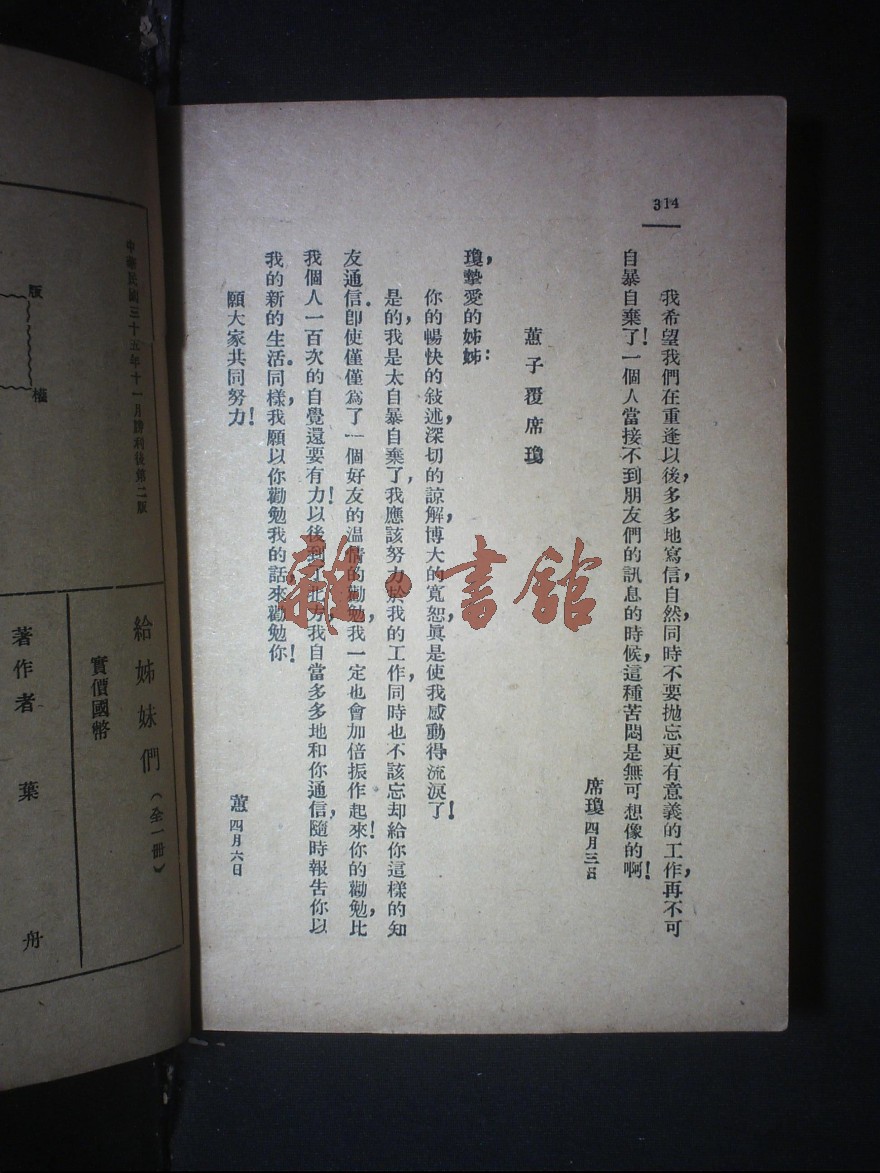 314
我希望我們在重逢以後，多多地寫信，自然，同時不要拋忘更有意義的工作，再不可
自暴自棄了！一個人當接不到朋友們的訊息的時候，這種苦悶是無可想像的啊！
席瓊 四月三日
蕙子覆席瓊
瓊，摯愛的姊姊：
你的暢快的叙述，深切的諒解，博大的寬恕，眞是使我感動得流淚了！
是的，我是太自暴自棄了，我應該努力於我的工作，同時也不該忘却給你這樣的知
友通信。卽使僅僅爲了一個好友的温情的勸勉，我一定也會加倍振作起來！你的勸勉，比
我個人一百次的自覺還要有力！以後到了北方，我自當多多地和你通信，隨時報告你以
我的新的生活。同樣，我願以你勸勉我的話，來勸勉你！
願大家共同努力！
蕙 四月六日
版
權
中華民國三十五年十一月勝利後第二版
給姊妹們（全一册）
實價國幣
著作者 葉舟
雜·書館